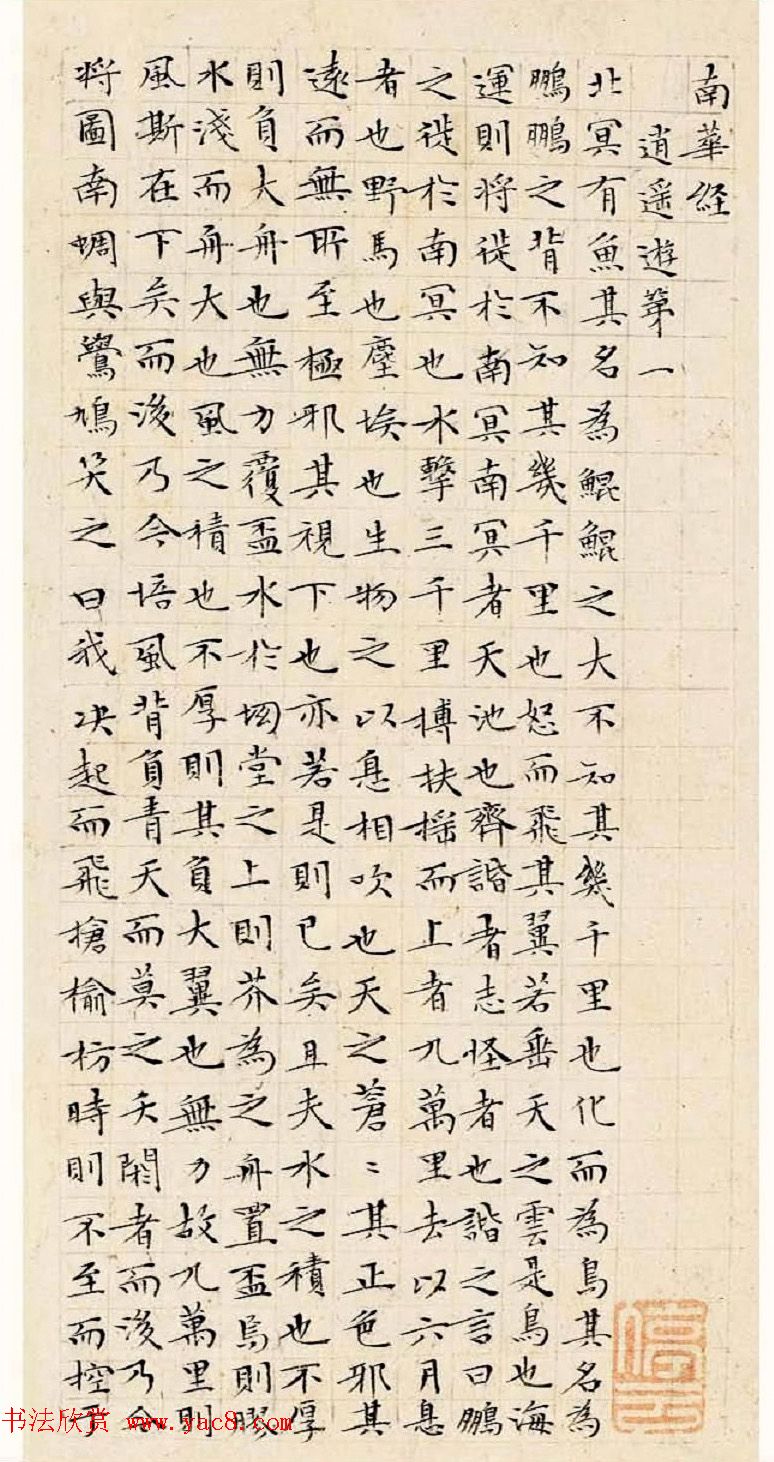 南華經
逍遥遊第一
北冥有魚其名為鯤鯤之大不知其幾千里也化而為鳥其名為
鵬鵬之背不知其幾千里也怒而飛其翼若垂天之雲是鳥也海
運則将徙於南冥南冥者天池也齊諧者志怪者也諧之言曰鵬
之徙於南冥也水擊三千里搏扶摇而上者九萬里去以六月息
者也野馬也塵埃也生物之以息相吹也天之蒼〻其正色邪其
遠而無所至極邪其視下也亦若是則已矣且夫水之積也不厚
則負大舟也無力覆盃水於坳堂之上則芥為之舟置盃焉則膠
水淺而舟大也風之積也不厚則其負大翼也無力故九萬里則
風斯在下矣而後乃今培風背負青天而莫之夭閼者而後乃今
将圖南蜩與鷽鳩笑之曰我决起而飛搶榆枋時則不至而控於
书法欣赏 www.yac8.com